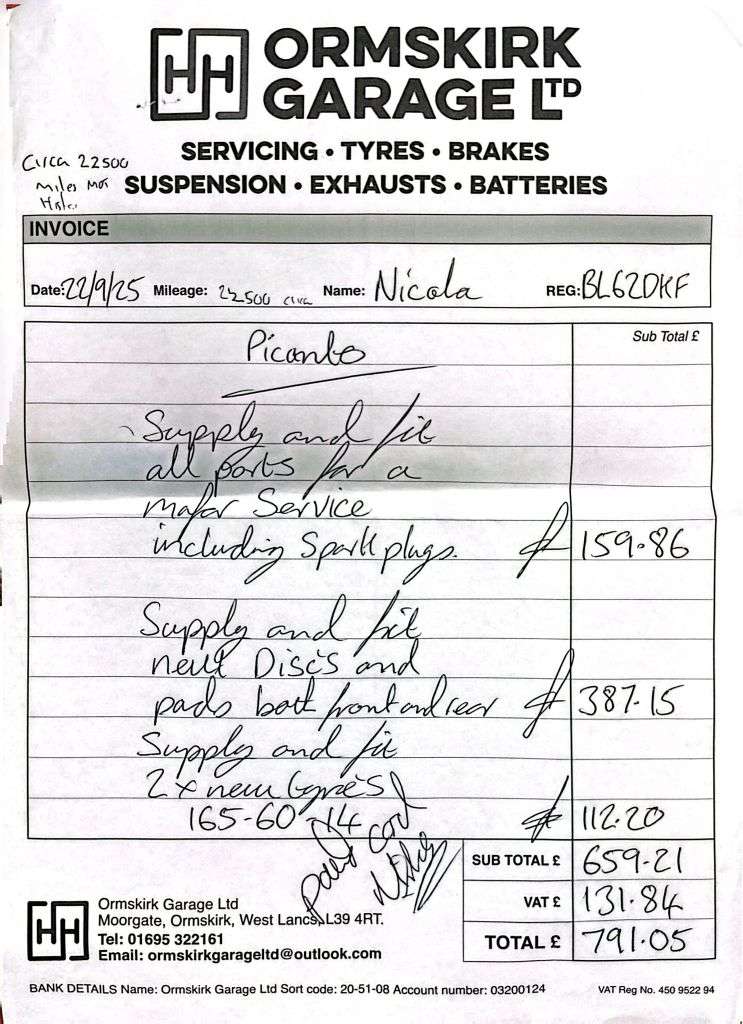 HH ORMSKIRK
GARAGE LTD
SERVICING • TYRES • BRAKES
SUSPENSION • EXHAUSTS • BATTERIES
Circa 22500
miles MOT
INVOICE
Date: 22/9/25 Mileage: 22500 circa Name: Nicola REG: BL62DKF
Sub Total £
Picanto
Supply and fit
all parts for a
major Service
including Spark plugs. £ 159.86
Supply and fit
new Disc's and
pads both front and rear £ 387.15
Supply and fit
2 x new tyre's
165-60-14 £ 112.20
paid card
SUB TOTAL £ 659-21
VAT £ 131.84
TOTAL £ 791.05
HH
Ormskirk Garage Ltd
Moorgate, Ormskirk, West Lancs, L39 4RT.
Tel: 01695 322161
Email: ormskirkgarageltd@outlook.com
BANK DETAILS Name: Ormskirk Garage Ltd Sort code: 20-51-08 Account number: 03200124 VAT Reg No. 450 9522 94